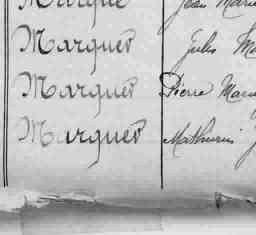 Marquer Jean Marie
Marquer Jules
Marquer Pierre Marie
Marquer Mathurin